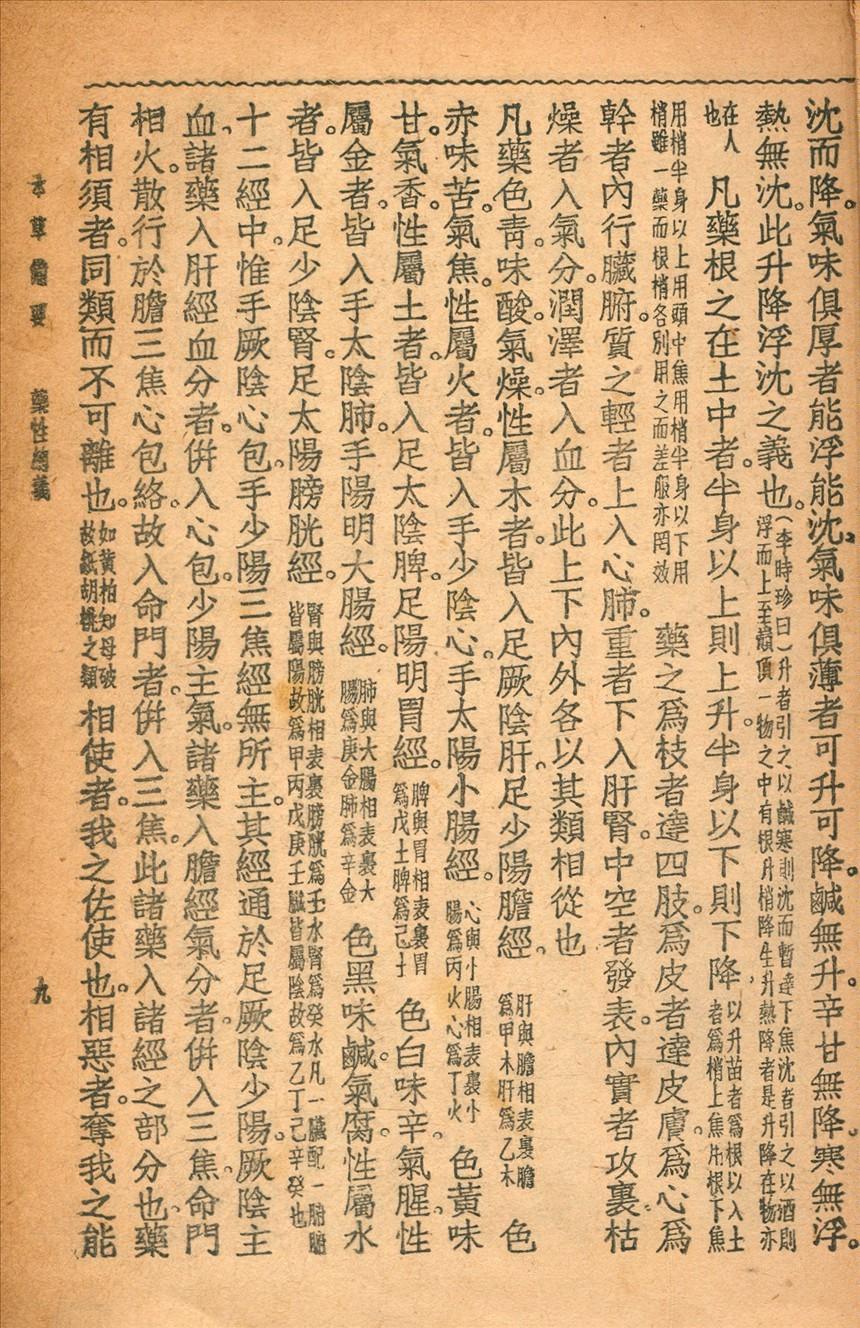 沈而降。氣味俱厚者能浮能沈。氣味俱薄者可升可降。鹹無升。辛甘無降。寒無浮。
熱無沈。此升降浮沈之義也。(李時珍曰)升者引之以鹹寒則沈而暫達下焦沈者引之以酒則浮而上至巔頂一物之中有根升梢降生升熱降者是升降在物亦
在人也 凡藥根之在土中者。半身以上則上升。半身以下則下降、以升苗者爲根以入土者爲梢上焦用根下焦
用梢半身以上用頭中焦用梢半身以下用梢雖一藥而根梢各別用之而差服亦罔效 藥之爲枝者達四肢。爲皮者達皮膚。爲心爲
幹者內行臟腑。質之輕者上入心肺。重者下入肝腎。中空者發表。內實者攻裏枯
燥者入氣分。潤澤者入血分。此上下內外各以其類相從也
凡藥色靑。味酸。氣燥。性屬木者。皆入足厥陰肝。足少陽膽經。肝與膽相表裏膽爲甲木肝爲乙木 色
赤味苦。氣焦。性屬火者。皆入手少陰心。手太陽小腸經。心與小腸相表裏小腸爲丙火心爲丁火 色黃味
甘。氣香。性屬土者。皆入足太陰脾。足陽明胃經。脾與胃相表裏胃爲戊土脾爲己土 色白味辛。氣腥。性
屬金者。皆入手太陰肺。手陽明大腸經。肺與大腸相表裏大腸爲庚金肺爲辛金 色黑味鹹。氣腐。性屬水
者。皆入足少陰腎。足太陽膀胱經。腎與膀胱相表裏膀胱爲壬水腎爲癸水凡一臟配一腑腑皆屬陽故爲甲丙戊庚壬臟皆屬陰故爲乙丁己辛癸也
十二經中。惟手厥陰心包。手少陽三焦經無所主。其經通於足厥陰少陽。厥陰主
血、諸藥入肝經血分者。併入心包。少陽主氣。諸藥入膽經氣分者。併入三焦。命門
相火。散行於膽三焦心包絡。故入命門者。併入三焦。此諸藥入諸經之部分也。藥
有相須者。同類而不可離也。如黃柏知母破故紙胡桃之類 相使者。我之佐使也。相惡者。奪我之能
本草備要 藥性總義 九